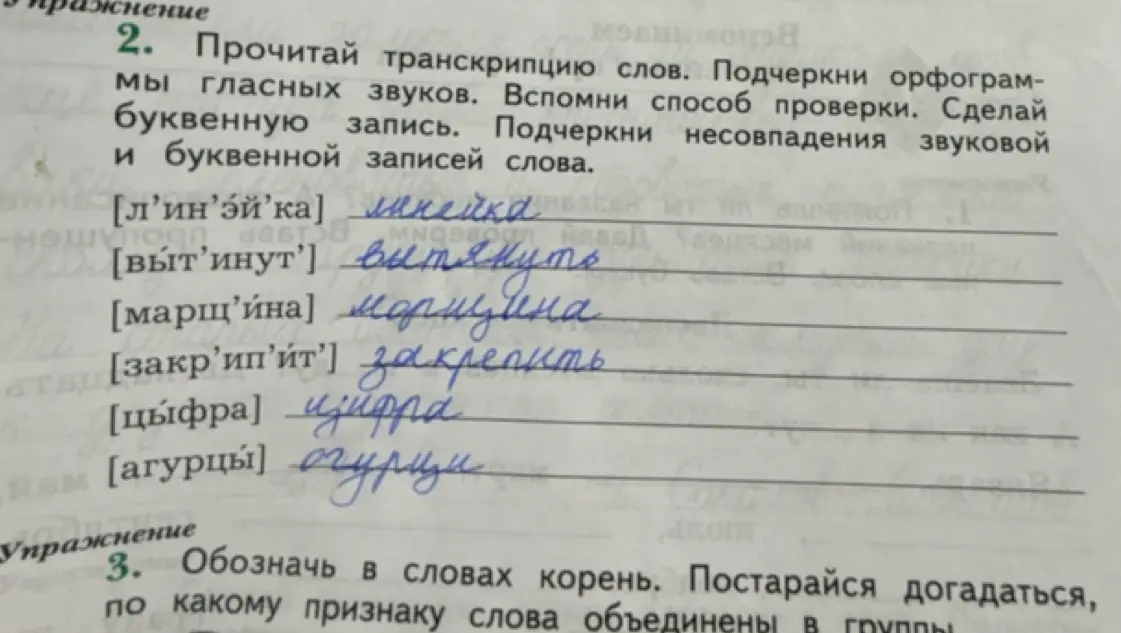 Упражнение
2. Прочитай транскрипцию слов. Подчеркни орфограм-
мы гласных звуков. Вспомни способ проверки. Сделай
буквенную запись. Подчеркни несовпадения звуковой
и буквенной записей слова.
[л’ин’э́й’ка] линейка
[вы́т’инут’] вытянуть
[марщ’и́на] морщина
[закр’ип’и́т’] закрепить
[цы́фра] цифра
[агурцы́] огурци
Упражнение
3. Обозначь в словах корень. Постарайся догадаться,
по какому признаку слова объединены в группы.